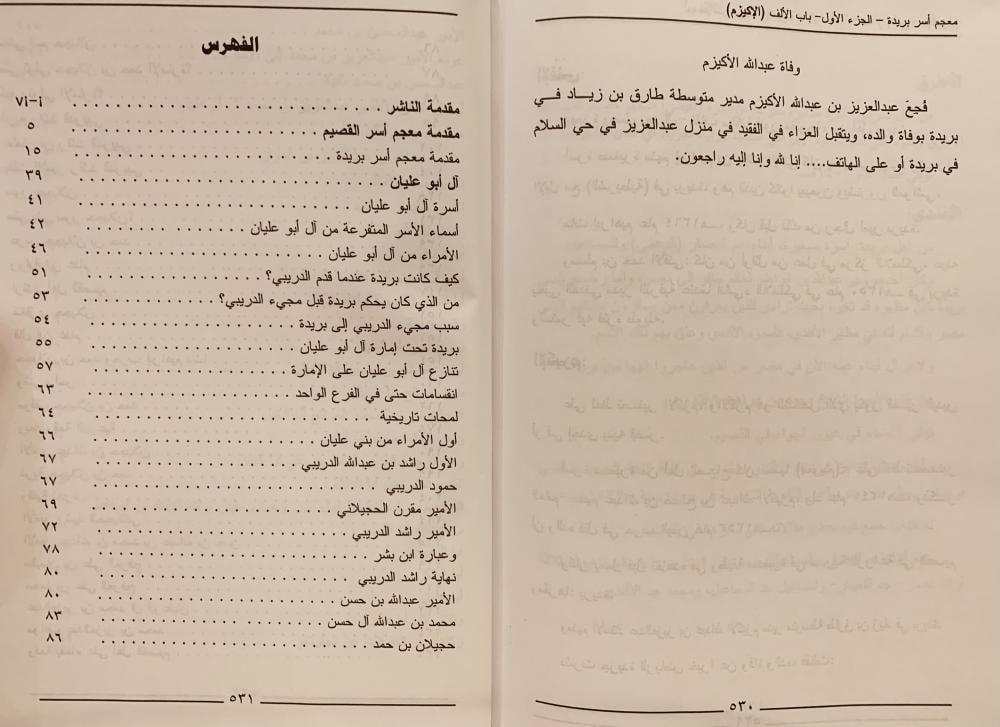 معجم أسر بريدة – الجزء الأول– باب الألف (الإكيزم)
وفاة عبدالله الأكيزم
فُجعَ عبدالعزيز بن عبدالله الأكيزم مدير متوسطة طارق بن زياد في
بريدة بوفاة والده، ويتقبل العزاء في الفقيد في منزل عبدالعزيز في حي السلام
في بريدة أو على الهاتف.... انا لله وإنا إليه راجعون.
٥٣٠
الفهرس
مقدمة الناشر . . . . . . . . . . . . . . . . . . . . . . . . . . . . . . vi-i
مقدمة معجم أسر القصيم . . . . . . . . . . . . . . . . . . . . . . . . ٥
مقدمة معجم أسر بريدة . . . . . . . . . . . . . . . . . . . . . . . . ١٥
آل أبو عليان . . . . . . . . . . . . . . . . . . . . . . . . . . . . . ٣٩
أسرة آل أبو عليان . . . . . . . . . . . . . . . . . . . . . . . . . . ٤١
أسماء الأسر المتفرعة من آل أبو عليان . . . . . . . . . . . . . . ٤٢
الأمراء من آل أبو عليان . . . . . . . . . . . . . . . . . . . . . . ٤٦
كيف كانت بريدة عندما قدم الدريبي؟ . . . . . . . . . . . . . . . ٥١
من الذي كان يحكم بريدة قبل مجيء الدريبي؟ . . . . . . . . . . ٥٣
سبب مجيء الدريبي إلى بريدة . . . . . . . . . . . . . . . . . . . ٥٤
بريدة تحت إمارة آل أبو عليان . . . . . . . . . . . . . . . . . . ٥٥
تنازع آل أبو عليان على الإمارة . . . . . . . . . . . . . . . . . . ٥٧
انقسامات حتى في الفرع الواحد . . . . . . . . . . . . . . . . . . ٦٣
لمحات تاريخية . . . . . . . . . . . . . . . . . . . . . . . . . . . ٦٤
أول الأمراء من بني عليان . . . . . . . . . . . . . . . . . . . . . ٦٦
الأول راشد بن عبدالله الدريبي . . . . . . . . . . . . . . . . . . ٦٧
حمود الدريبي . . . . . . . . . . . . . . . . . . . . . . . . . . . . ٦٧
الأمير مقرن الحجيلاني . . . . . . . . . . . . . . . . . . . . . . . ٦٩
الأمير راشد الدريبي . . . . . . . . . . . . . . . . . . . . . . . . ٧٢
وعبارة ابن بشر . . . . . . . . . . . . . . . . . . . . . . . . . . . ٧٨
نهاية راشد الدريبي . . . . . . . . . . . . . . . . . . . . . . . . . ٨٠
الأمير عبدالله بن حسن . . . . . . . . . . . . . . . . . . . . . . . ٨٠
محمد بن عبدالله آل حسن . . . . . . . . . . . . . . . . . . . . . ٨٣
حجيلان بن حمد . . . . . . . . . . . . . . . . . . . . . . . . . . ٨٦
٥٣١